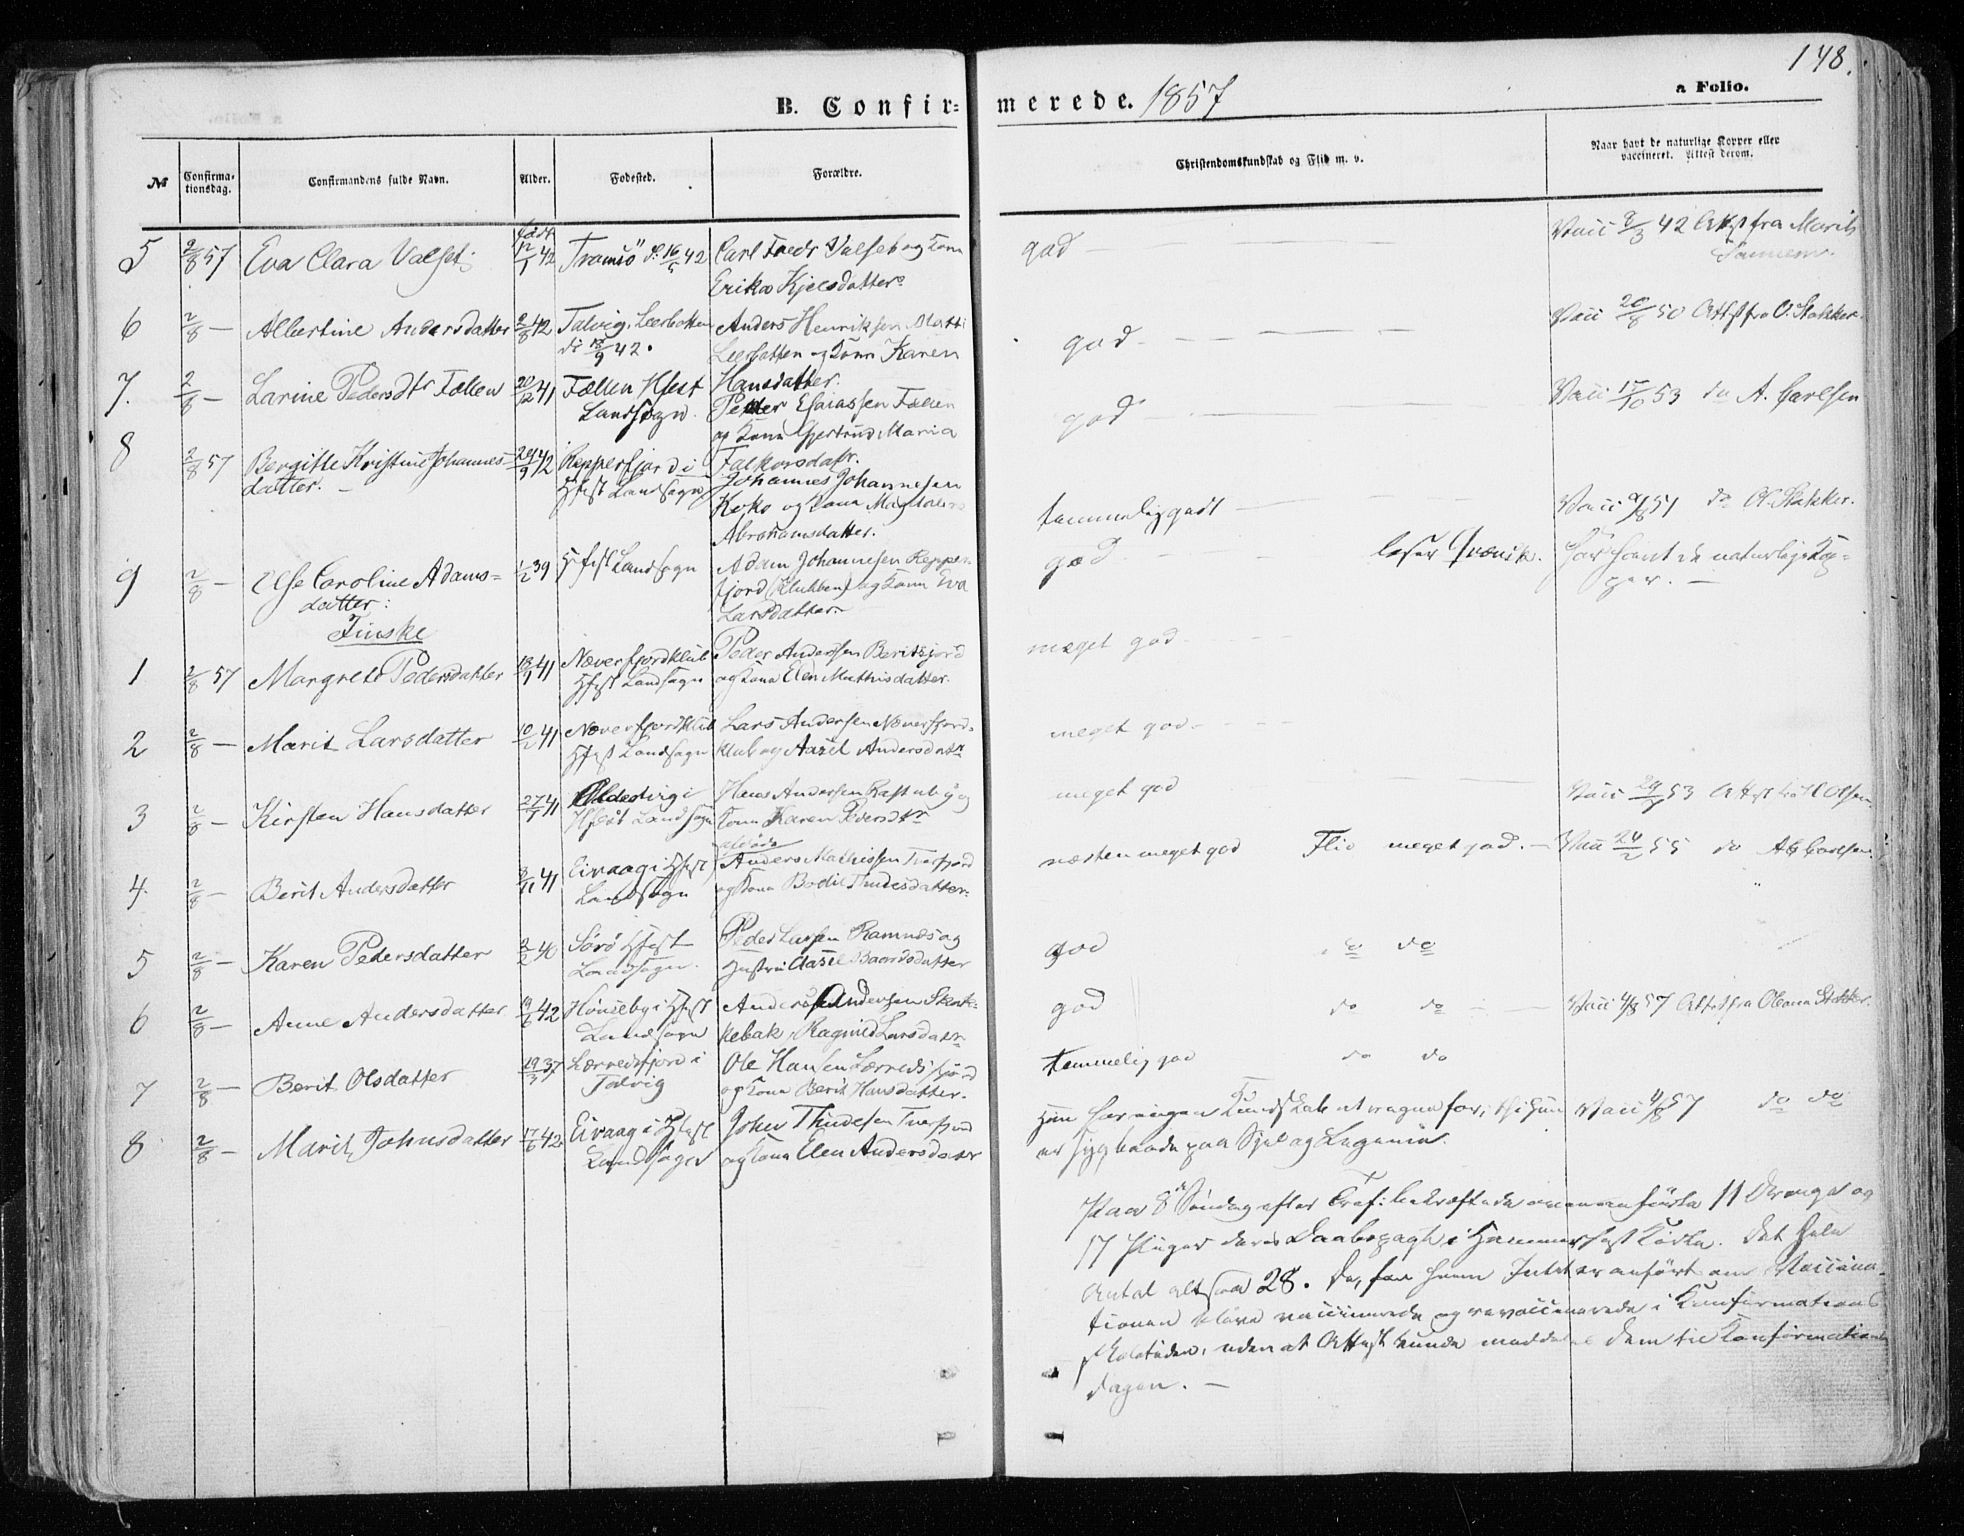 148.
B. Confirmerede. 1857
a Folio.
№ Confirmationsdag. Confirmandens fulde Navn. Alder. Fødested. Forældre. Christendomskundskab og Flid m. v. Naar havt de naturlige Kopper eller vaccineret. Attest derom.
5 2/8 57 Eva Clara Valset født 12/1 42 Tromsö d. 16/5 42 Carl Fredr Valseb og Kone Erika Kjelsdatter god Vacc 8/3 42 Attest fra Marit
6 2/8 — Albertine Andersdatter 2/8 42 Talvig, Leerbotten d: 18/9 42. Anders Henriksen Matti Leerbotten og Kone Karen Hansdatter. god Vacc 20/8 50 Attest fra O. Stakker.
7. 2/8 — Larine Pedersdtr Fællen 20/12 41 Fællen Hfest Landsogn. Peder Esaiassen Fælen og Kone Gjertrud Maria Falkorsdatr. god Vacc 15/10 53 do A. Carlsen
8 2/8 57 Bergitte Kristine Johannesdatter. — 29/9 42 Repperfjord i Hfest Landsogn Johannes Johannesen Koko og Kone Magdalena Abrahamsdatter. temmelig godt Vacc 4/8 57 do Ol. Stakker.
9 2/8 — Else Caroline Adamsdatter: 1/2 39 Hfest Landsogn Adam Johannesen Repperfjord (Klubben) og Kone Eva Larsdatter god læser Qvænsk. har havt de naturlige Kopper. —
Finske
1 2/8 57 Margrete Pedersdatter 18/1 41 Næverfjordklub Hfest Landsogn Peder Anderssen Beritsjord og Kone Elen Mathisdatter. meget god
2 2/8 — Marit Larsdatter 10/2 41 Næverfjordklub Hfest Landsogn Lars Andersen Næverfjordklub og Aasel Andersdatr meget god
3 2/8 — Kirsten Hansdatter 27/7 41 i Hfest Landsogn Hans Andersen og Kone Karen Pedersdtr meget god Vacc 29/7 53 Attest fra Olsen
4. 2/8 — Berit Andersdatter 3/11 41 Eivaag i Hfest Landsogn Anders Mathissen Tverfjord og Kone Bodil Thudesdatter. næsten meget god Flid meget god. — Vacc 24/2 55 do A. Carlsen
5 2/8 — Karen Pedersdatter 2/2 40 Sörö Hfest Landsogn. Peder Larsen Ramnæs og Hustru Aasel Baardsdatter god do do
6 2/8 — Anne Andersdatter 9/6 42 Hönseby i Hfest Landsogn Anders Andersen Skarkebak, Ragnild Larsdatr god do do Vacc 4/8 57 Attest fra Oleana Stakker.
7 2/8 — Berit Olsdatter 19/3 37 Lærredsfjord i Talvig Ole Hansen Lærredsfjord og Kone Berit Hansdatter. temmelig god do do
8 2/8 — Marit Johnsdatter 17/6 42 Eivaag i Hfest Landsogn John Thudesen Tverfjord og Kone Elen Andersdatter Hun har ringe Kundskab at regne for, thi hun er syg baade paa Sjel og Legeme. Vacc 4/8 57 do do
Paa 8de Söndag efter Tref: bekræftede ovenanförte 11 Drenge og
17 Piger deres Daabspagt i Hammerfest Kirke. Det hele
Antal altsaa 28. De, for hvem Intet er anfört om Vaccinationen
bleve vaccinerede og revaccinerede i Konfirmations
skoletiden, uden at Attest kunde meddeles dem til Konfirmations
dagen. —